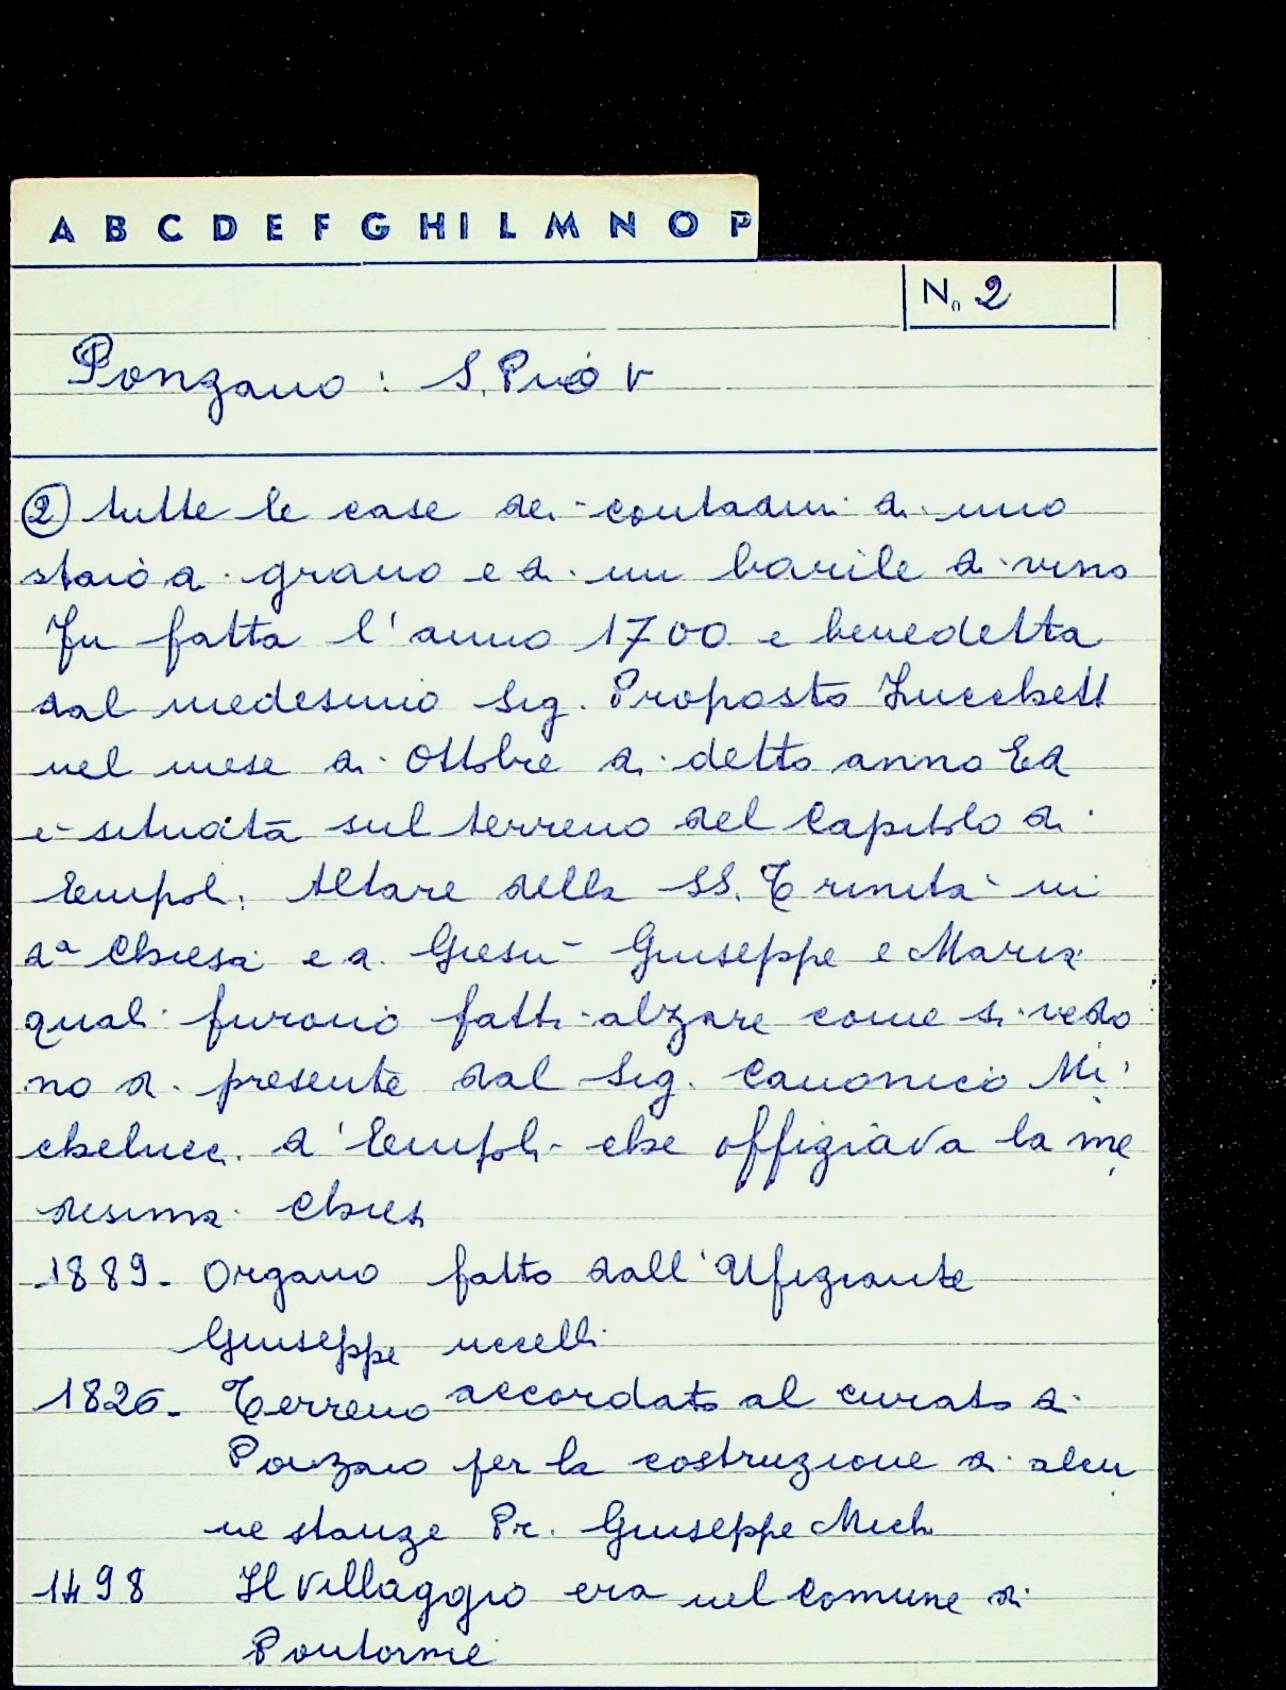 A B C D E F G H I L M N O P
N. 2
Ponzano: S.
② tutte le case dei contadini di uno
staio di grano e di un barile di vino
Fu fatta l'anno 1700 e benedetta
dal medesimo Sig. Proposto
nel mese di Ottobre di detto anno Ed
è situata sul terreno del Capitolo di
Empoli. Altare della SS. Trinità in
da Chiesa e di Giesù Giuseppe e Maria
quali furono fatti alzare come si vedo
no di presente dal Sig. Canonico Mi
chelucci d'Empoli che offiziava la me
desima Chiesa
1889- Organo fatto dall'Ufiziante
Giuseppe uccelli
1826- Terreno accordato al curato di
Ponzano per la costruzione di alcu
ne stanze Pr. Giuseppe Mich
1498 Il Villaggio era nel Comune di
Pontorme